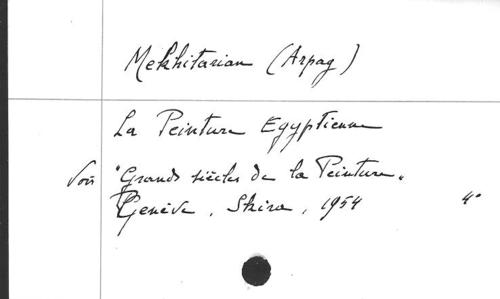 Mekhitarian (Arpag)
La Peinture Egyptienne
Voir "Grands siècles de la Peinture"
Genève, Skira, 1954 4°